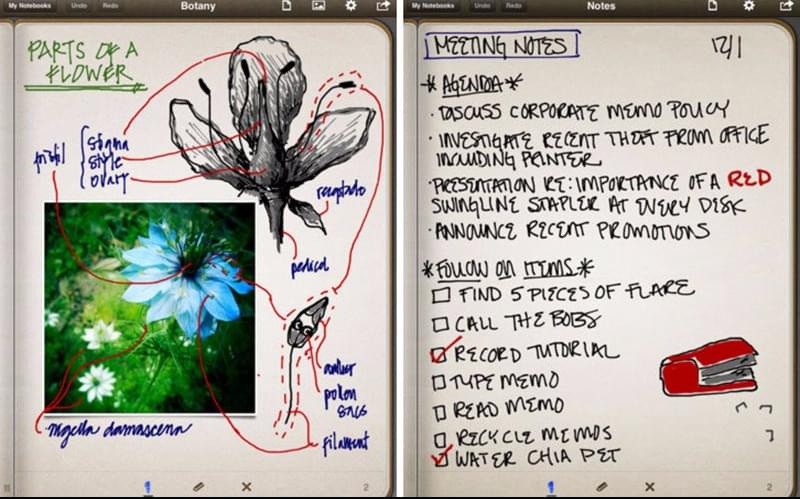 My Notebooks Undo Redo Botany
PARTS OF A
FLOWER
pistil
stigma
style
ovary
receptacle
pedicel
anther
pollen
sacs
filament
nigella damascena
2
My Notebooks Undo Redo Notes
MEETING NOTES
12/1
*AGENDA*
· DISCUSS CORPORATE MEMO POLICY
· INVESTIGATE RECENT THEFT FROM OFFICE
INCLUDING PRINTER
· PRESENTATION RE: IMPORTANCE OF A RED
SWINGLINE STAPLER AT EVERY DESK
· ANNOUNCE RECENT PROMOTIONS
*FOLLOW ON ITEMS*
FIND 5 PIECES OF FLARE
CALL THE BOBS
RECORD TUTORIAL
TYPE MEMO
READ MEMO
RECYCLE MEMOS
WATER CHIA PET
2